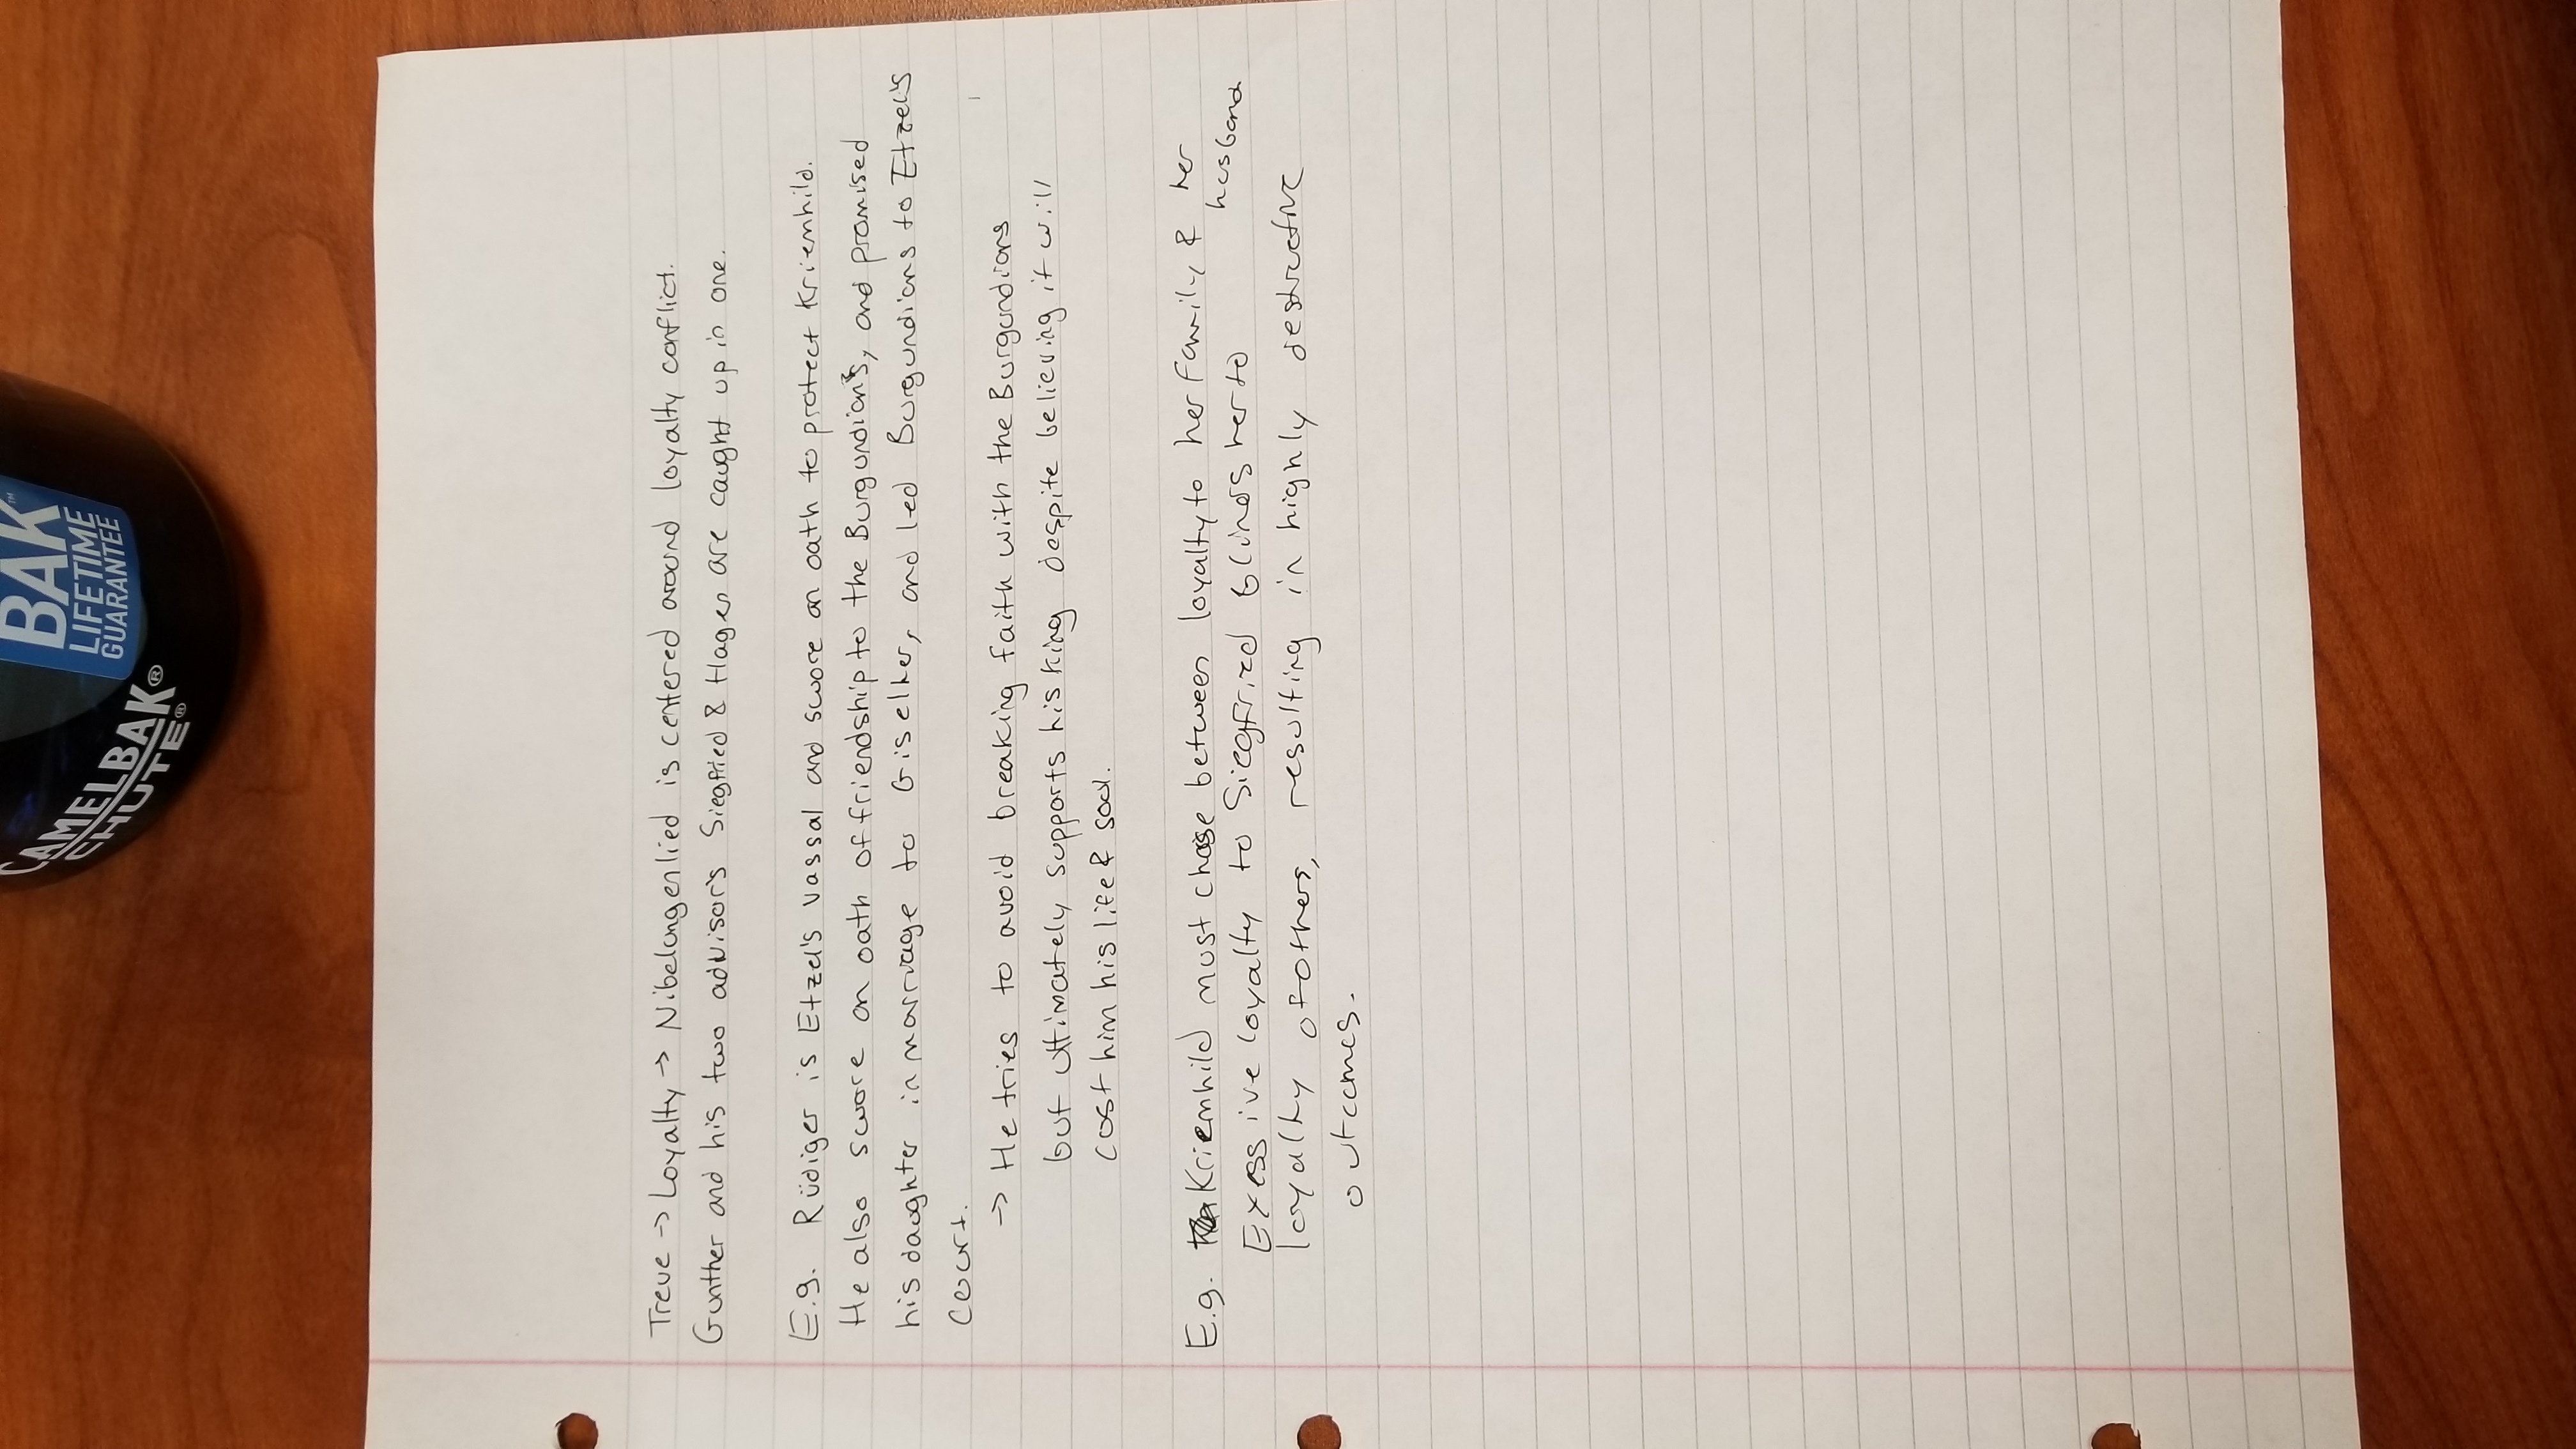 CAMELBAK®
CHUTE®
BAK™
LIFETIME
GUARANTEE
Treue -> Loyalty -> Nibelungenlied is centered around loyalty conflict.
Gunther and his two advisor's Siegfried & Hagen are caught up in one.
E.g. Rüdiger is Etzel's vassal and swore an oath to protect Kriemhild.
He also swore an oath of friendship to the Burgundians, and promised
his daughter in marriage to Giselher, and led Burgundians to Etzel's
court.
-> He tries to avoid breaking faith with the Burgundians
but ultimately supports his king despite believing it will
cost him his life & soul.
E.g. Kriemhild must chose between loyalty to her family & her
husband
Exessive loyalty to Siegfried blinds her to
loyalty of others, resulting in highly destructive
outcomes.